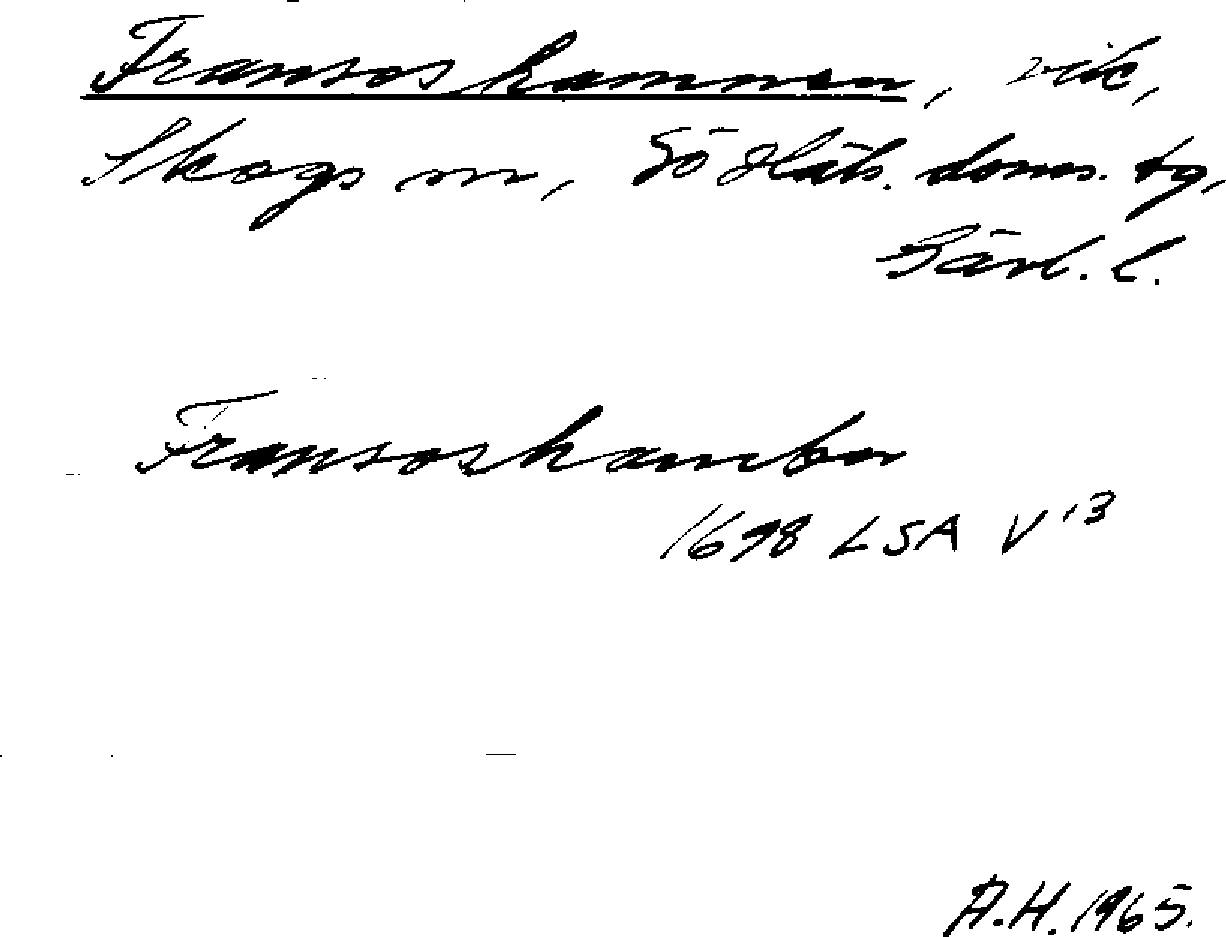 Fransoshammen, vik,
Skogs sn, Sö Häls. doms. tg,
Gävl. l.
Fransoshambn
1698 LSA V 13
A.H. 1965.